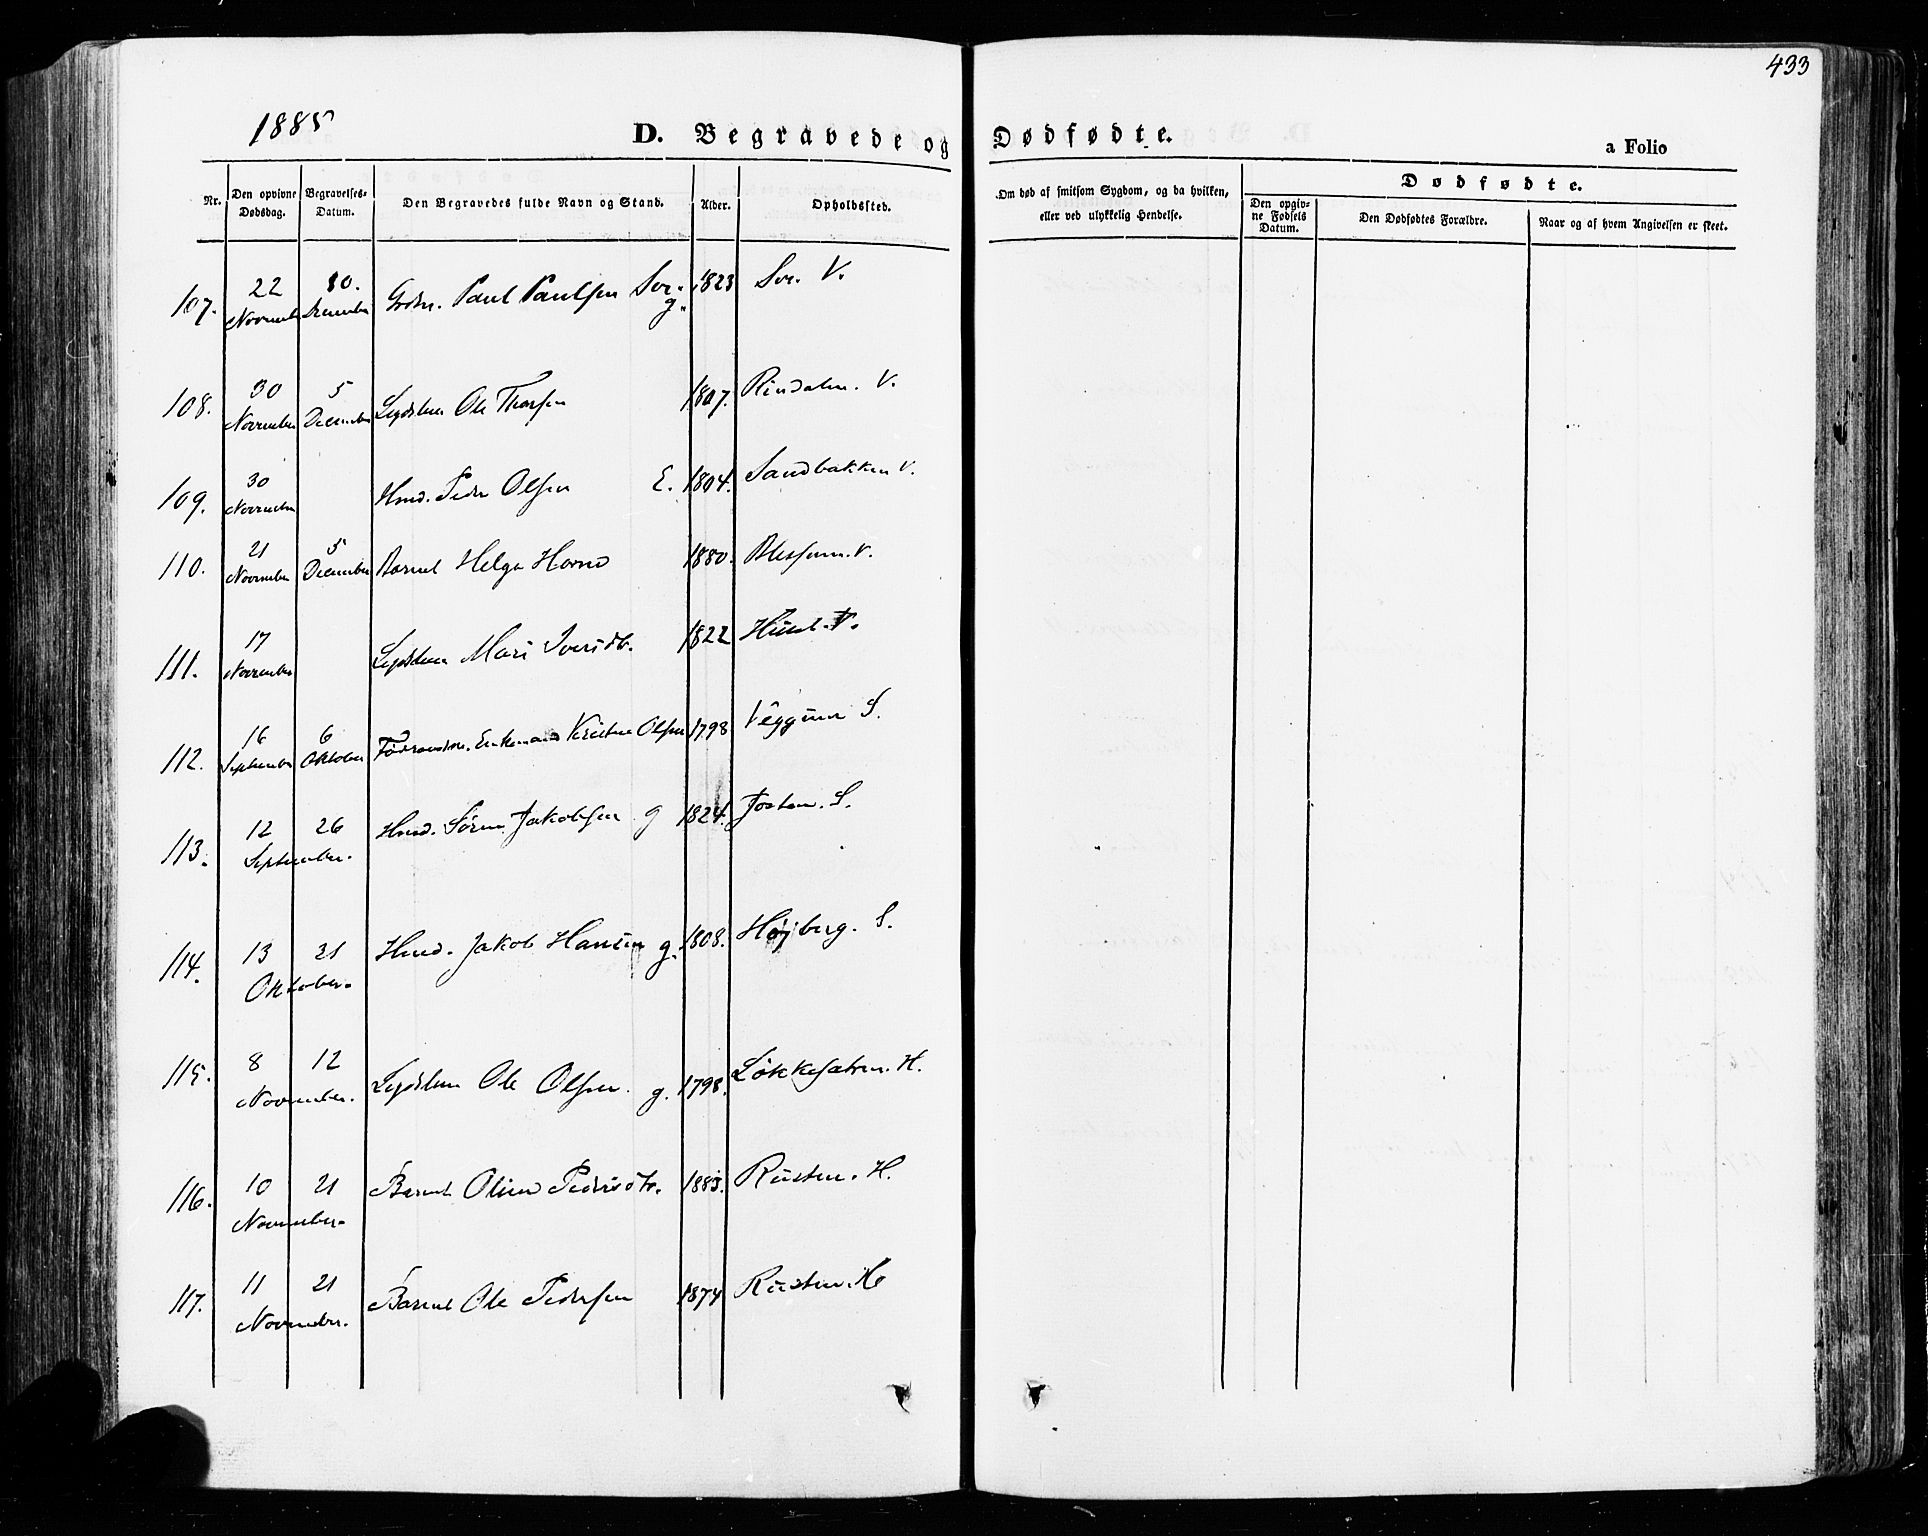 433
1885
D. Begravede og Dødfødte.
a Folio
Nr.
Den opgivne Dødsdag.
Begravelses-Datum.
Den Begravedes fulde Navn og Stand.
Alder.
Opholdssted.
Om død af smitsom Sygdom, og da hvilken,
eller ved ulykkelig Hendelse.
Dødfødte.
Den opgiv-
ne Fødsels
Datum.
Den Dødfødtes Forældre.
Naar og af hvem Angivelsen er skeet.
107. 22 November 10. December Paul Paulsen Sve. g. 1823 Sve. V.
108. 30 November 5 December Lægdslem Ole Thorsen 1807. Rindalen. V.
109. 30 November Hmd. Peder Olsen E. 1804. Sandbakken V.
110. 21 November 5 December Barnet Helga Hovne 1880. Blessum. V.
111. 17 November Lægdslem Mari Iversdtr. 1822
112. 16 September 6 Oktober Enkemand Olsen 1798 Veggum S.
113. 12 26 September. Hmd. Sören Jakobsen g 1824. S.
114. 13 21 Oktober. Hmd. Jakob Hansen g. 1808. Højberg. S.
115. 8 12 November. Lægdslem Ole Olsen. g. 1798. Løkkesatren. H.
116. 10 21 November. Barnet Oline Pedersdtr. 1883. Rusten. H.
117. 11 21 November. Barnet Ole Pedersen 1874 Rusten. H